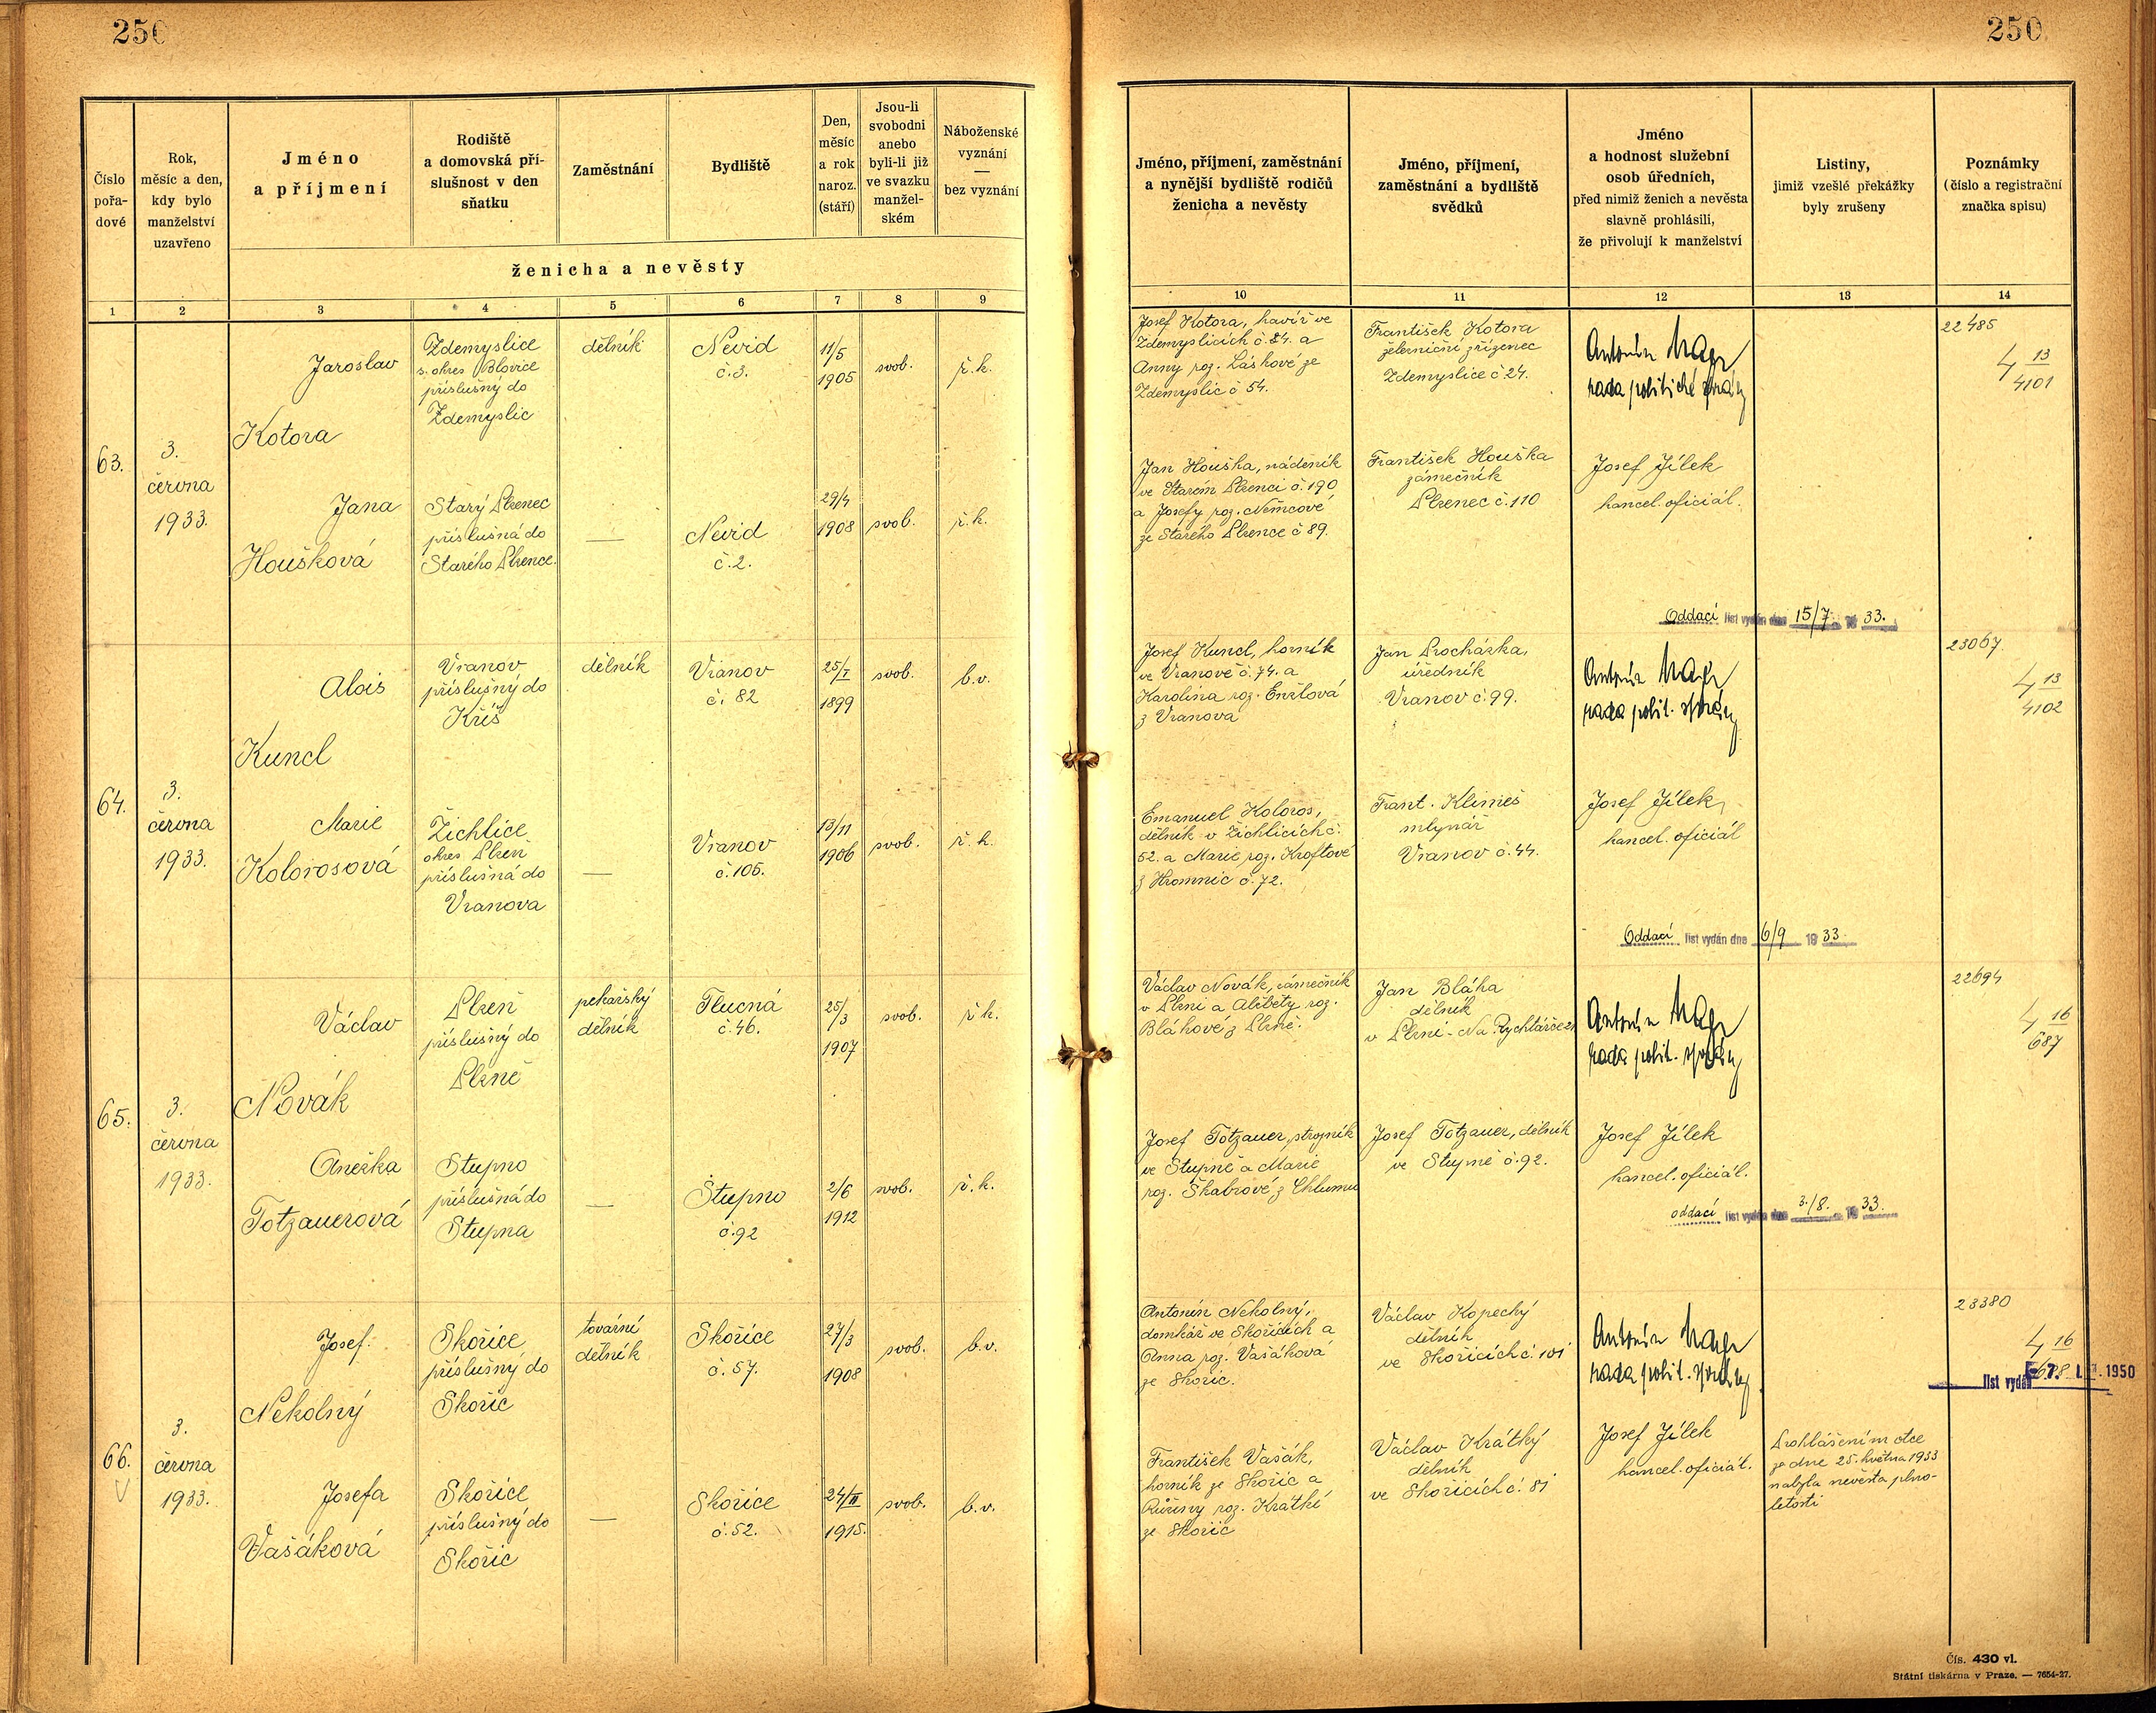 250
250
Číslo
pořa-
dové
Rok,
měsíc a den,
kdy bylo
manželství
uzavřeno
Jméno
a příjmení
Rodiště
a domovská pří-
slušnost v den
sňatku
Zaměstnání
Bydliště
Den,
měsíc
a rok
naroz.
(stáří)
Jsou-li
svobodni
anebo
byli-li již
ve svazku
manžel-
ském
Náboženské
vyznání
—
bez vyznání
ženicha a nevěsty
Jméno, příjmení, zaměstnání
a nynější bydliště rodičů
ženicha a nevěsty
Jméno, příjmení,
zaměstnání a bydliště
svědků
Jméno
a hodnost služební
osob úředních,
před nimiž ženich a nevěsta
slavně prohlásili,
že přivolují k manželství
Listiny,
jimiž vzešlé překážky
byly zrušeny
Poznámky
(číslo a registrační
značka spisu)
1 2 3 4 5 6 7 8 9 10 11 12 13 14
63.
3.
června
1933.
Jaroslav
Kotora
Zdemyslice
s. okres Blovice
příslušný do
Zdemyslic
dělník
Nevid
č.3.
11/5
1905
svob.
ř.k.
Josef Kotora, havíř ve
Zdemyslicích č.84. a
Anny roz. Láskové ze
Zdemyslic č 54.
František Kotora
železniční zřízenec
Zdemyslice č 24.
Antonín
rada politické správy
22485
4 13
4101
Jana
Houšková
Starý Plzenec
příslušná do
Starého Plzence.
—
Nevid
č.2.
29/4
1908
svob.
ř.k.
Jan Houška, nádeník
ve Starém Plzenci č.190
a Josefy roz. Němcové
ze Starého Plzence č 89.
František Houška
zámečník
Plzenec č.110
Josef Jílek
kancel. oficiál.
Oddací list vydán dne 15/7 19 33.
64.
3.
června
1933.
Alois
Kuncl
Vranov
příslušný do
Kříš
dělník
Vranov
č. 82
25/I
1899
svob.
b.v.
Josef Kuncl, horník
ve Vranově č.74. a
Karolina roz. Enžlová
z Vranova
Jan Procházka,
úředník
Vranov č.99.
Antonín
rada polit. správy
23067.
4 13
4102
Marie
Kolorosová
Žichlice
okres Plzeň
příslušná do
Vranova
—
Vranov
č.105.
13/11
1906
svob.
ř.k.
Emanuel Koloros,
dělník v Žichlicích č.
52. a Marie roz. Kroftové
z Hromnic č.72.
Frant. Klimeš
mlynář
Vranov č.44.
Josef Jílek,
kancel. oficiál
Oddací list vydán dne 6/9 19 33
65.
3.
června
1933.
Václav
Novák
Plzeň
příslušný do
Plzně
pekařský
dělník
Tlucná
č.46.
25/3
1907
svob.
ř.k.
Václav Novák, zámečník
v Plzni a Alžběty roz.
Bláhové z Plzně.
Jan Bláha
dělník
v Plzni - Na Rychtářce
Antonín
rada polit. správy
22694
4 16
687
Anežka
Totzauerová
Stupno
příslušná do
Stupna
—
Stupno
č.92
2/6
1912
svob.
ř.k.
Josef Totzauer, strojník
ve Stupně a Marie
roz. Škabrové z Chlumu
Josef Totzauer, dělník
ve Stupně č.92.
Josef Jílek
kancel. oficiál.
oddací list vydán dne 3./8. 19 33.
66.
3.
června
1933.
Josef
Nekolný
Skořice
příslušný do
Skořic
tovární
dělník
Skořice
č.57.
27/3
1908
svob.
b.v.
Antonín Nekolný,
domkář ve Skořicích a
Anna roz. Vašáková
ze Skořic.
Václav Kopecký
dělník
ve Skořicích č. 101
Antonín
rada polit. správy
23380
4 16
688
list vydán 1950
Josefa
Vašáková
Skořice
příslušný do
Skořic
—
Skořice
č.52.
24/III
1915.
svob.
b.v.
František Vašák,
horník ze Skořic a
Růžiny roz. Krátké
ze Skořic
Václav Krátký
dělník
ve Skořicích č. 81
Josef Jílek
kancel. oficiál.
Prohlášením otce
ze dne 25. května 1933
nabyla nevěsta plno-
letosti
Čís. 430 vl.
Státní tiskárna v Praze. — 7654-27.